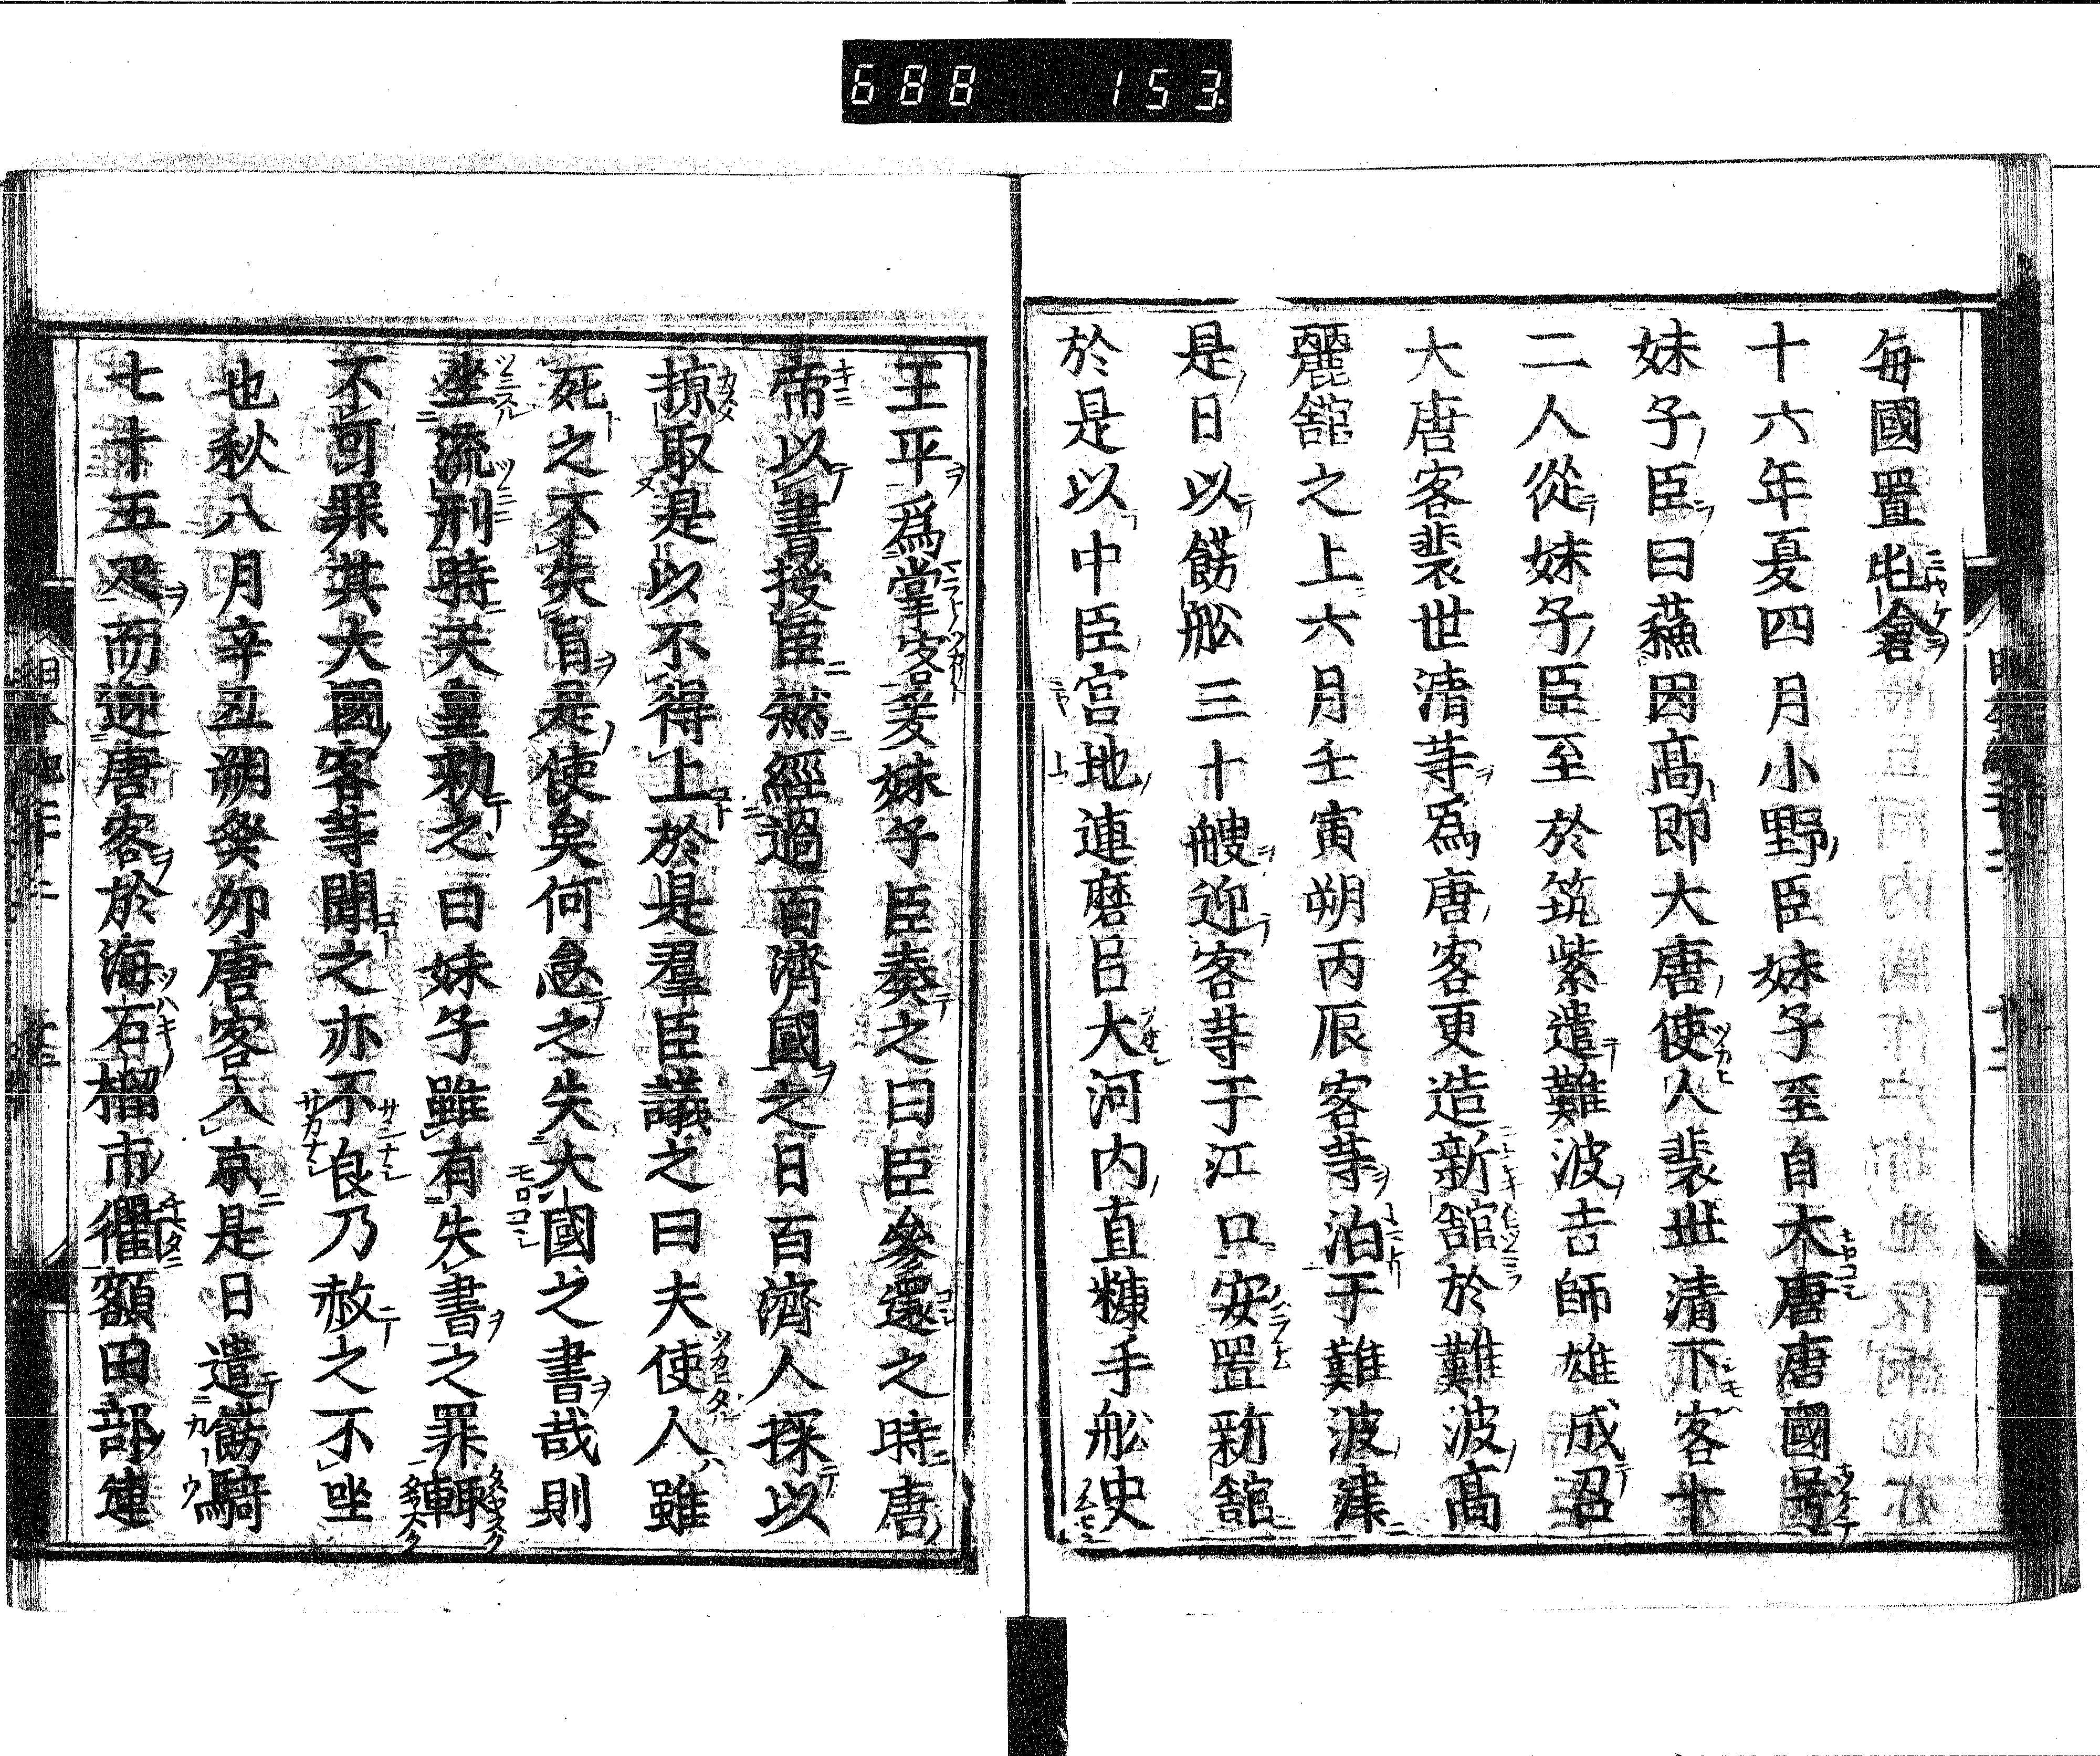 688 153
每國置屯倉
十六年夏四月小野臣妹子至自大唐唐國号
妹子臣曰蘓因髙即大唐使人裴世清下客十
二人從妹子臣至於筑紫遣難波吉師雄成召
大唐客裴世清䓁爲唐客更造新舘於難波髙
麗舘之上六月壬寅朔丙辰客䓁泊于難波津
是日以餝舩三十艘迎客䓁于江口安置新舘
於是以中臣宮地連磨呂大河内直糠手舩史
王平爲掌客爰妹子臣奏之曰臣參還之時唐
帝以書授臣然經過百濟國之日百濟人探以
掠取是以不得上於是羣臣議之曰夫使人雖
死之不失旨是使矣何怠之失大國之書哉則
坐流刑時天皇勑之曰妹子雖有失書之罪輙
不可罪其大國客䓁聞之亦不良乃赦之不坐
也秋八月辛丑朔癸卯唐客入京是日遣餝騎
七十五疋而迎唐客於海石榴市衢額田部連